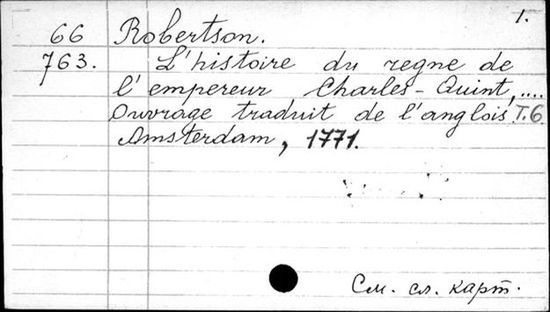 1.
66 Robertson.
763. L'histoire du regne de
l'empereur Charles-Quint, ....
Ouvrage traduit de l'anglois T.6
Amsterdam, 1771.
См. сл. карт.